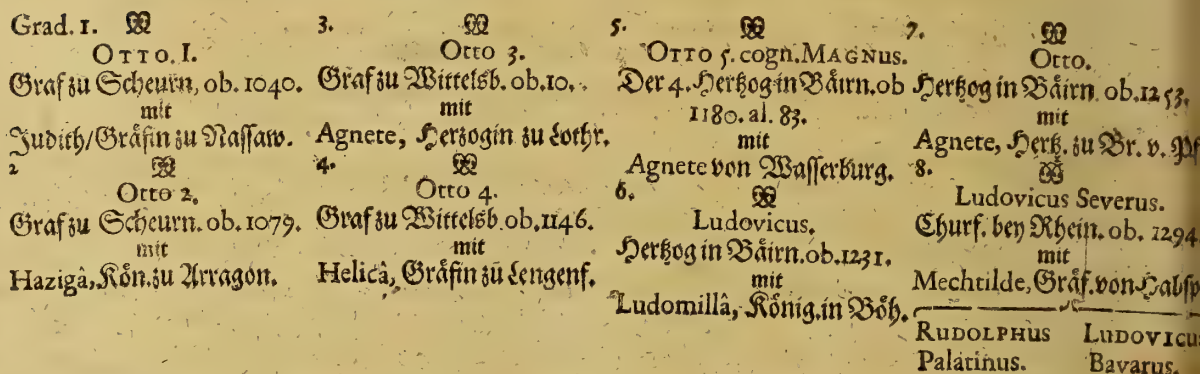 Grad. 1.
OTTO. I.
Graf zu Scheurn, ob. 1040.
mit
Judith/Gråfin zu Nassaw.
2
Otto 2.
Graf zu Scheurn. ob. 1079.
mit
Hazigâ, Kön. zu Arragon.
3.
Otto 3.
Graf zu Wittelsb. ob. 10.
mit
Agnete, Herzogin zu Lothr.
4.
Otto 4.
Graf zu Wittelsb. ob. 1146.
mit
Helicâ, Gråfin zu Lengenf.
5.
OTTO 5. cogn. MAGNUS.
Der 4. Hertzog in Båirn. ob
1180. al. 83.
mit
Agnete von Wasserburg.
6.
Ludovicus.
Hertzog in Båirn. ob. 1231.
mit
Ludomillâ, König. in Böh.
7.
Otto.
Hertzog in Båirn. ob. 1253.
mit
Agnete, Hertz. zu Br. v. Pf
8.
Ludovicus Severus.
Churf. bey Rhein. ob. 1294
mit
Mechtilde, Gråf. von Habsp
RUDOLPHUS LUDOVICUS
Palatinus. Bavarus.